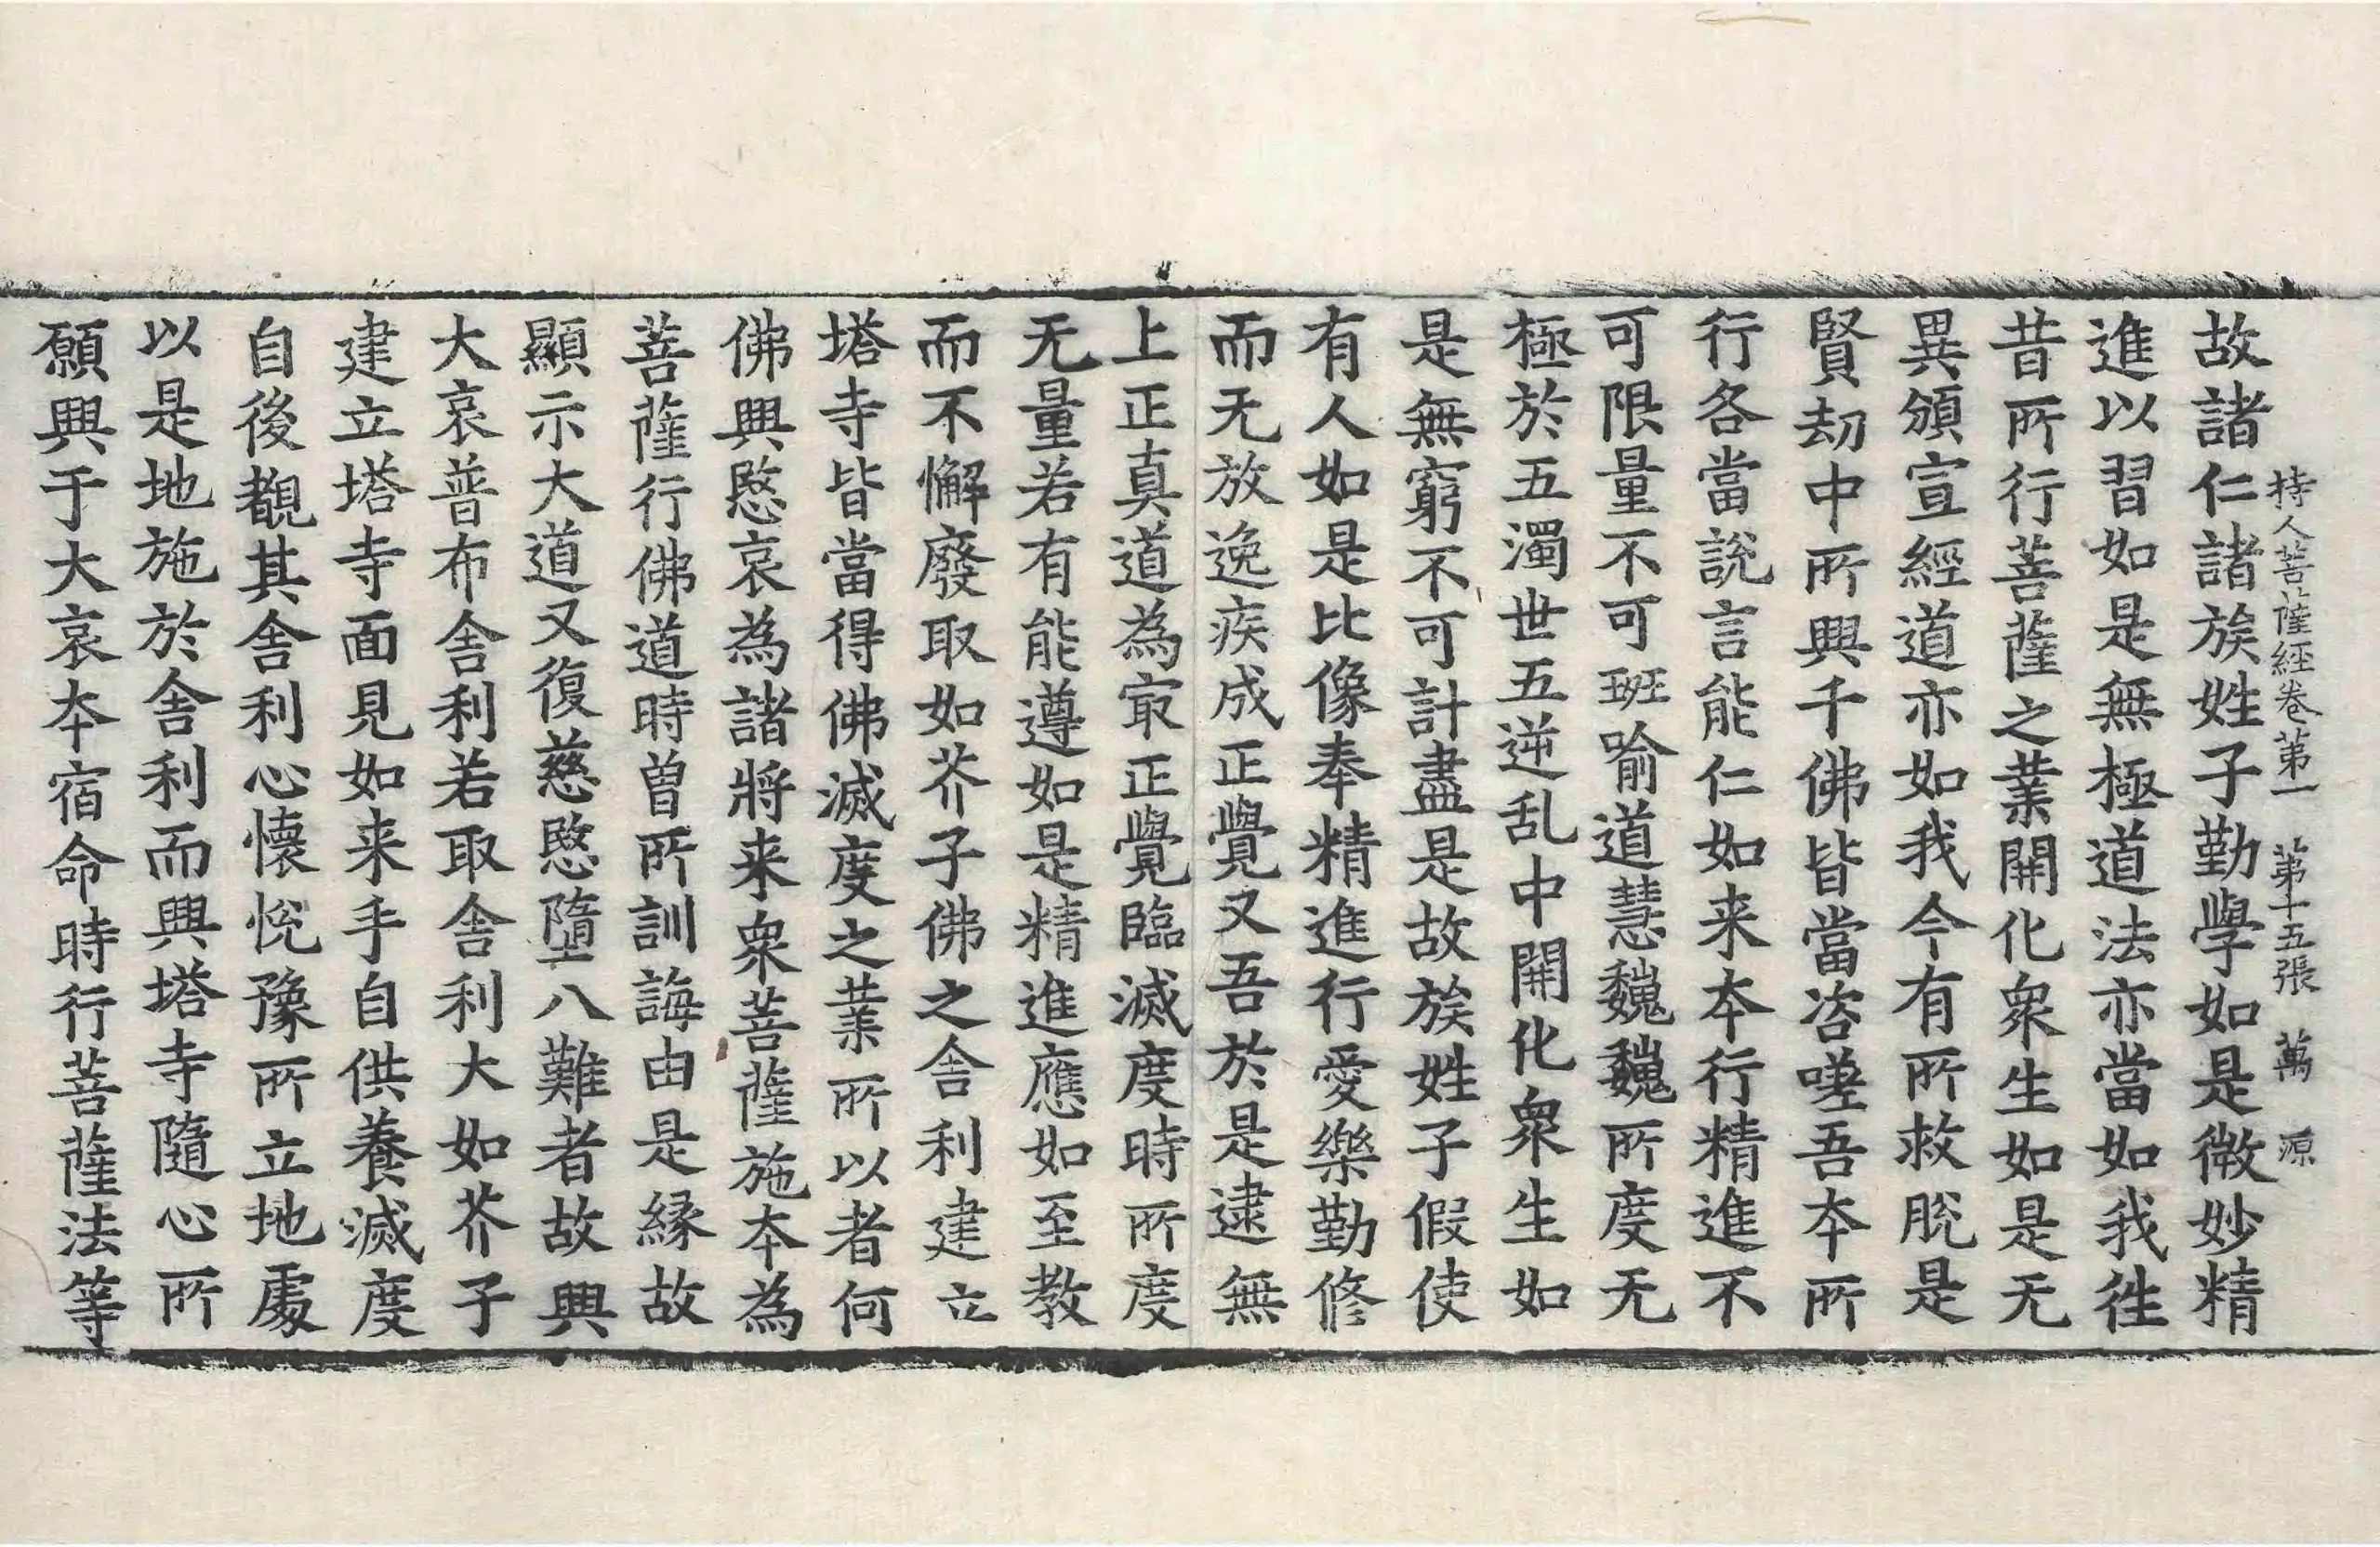 持人菩薩經卷第一 第十五張 萬 源
故諸仁諸族姓子勤學如是微妙精
進以習如是無極道法亦當如我徃
昔所行菩薩之業開化衆生如是无
異頒宣經道亦如我今有所救脫是
賢劫中所興千佛皆當咨嗟吾本所
行各當說言能仁如来本行精進不
可限量不可班喻道慧魏魏所度无
極於五濁世五逆乱中開化衆生如
是無窮不可計盡是故族姓子假使
有人如是比像奉精進行愛樂勤修
而无放逸疾成正覺又吾於是逮無
上正真道為㝡正覺臨滅度時所度
无量若有能遵如是精進應如至教
而不懈廢取如芥子佛之舎利建立
塔寺皆當得佛滅度之業所以者何
佛興愍哀為諸將来衆菩薩施本為
菩薩行佛道時曽所訓誨由是縁故
顯示大道又復慈愍墮八難者故興
大哀普布舎利若取舎利大如芥子
建立塔寺面見如来手自供養滅度
自後覩其舎利心懷悅豫所立地處
以是地施於舎利而興塔寺隨心所
願興于大哀本宿命時行菩薩法等